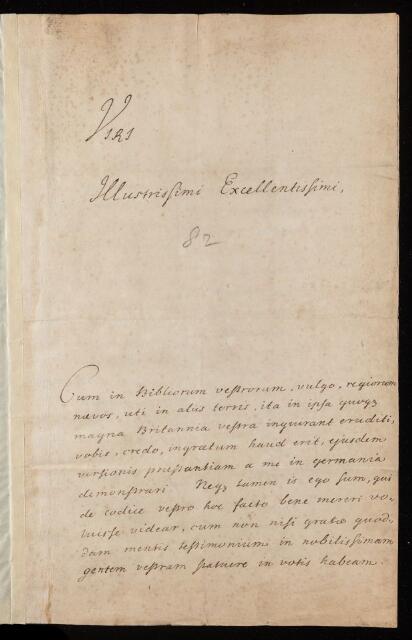 Viri
Illustrissimi Excellentissimi,
82
Cum in Bibliorum vestrorum, vulgo, regiorum
nævos, uti in aliis terris, ita in ipsa quoqȝ
magna Britannia vestra inquirant eruditi,
vobis, credo, ingratum haud erit, ejusdem
versionis præstantiam a me in germania
demonstrari. Neqȝ tamen is ego sum, qui
de codice vestro hoc facto bene mereri vo-
luisse videar, cum non nisi gratæ quod-
dam mentis testimonium in nobilissimam
gentem vestram statuere in votis habeam.